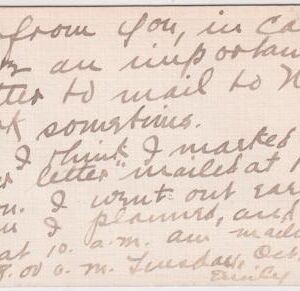 from you, in ca
an importan
tter to mail to N
k sometime.
I think I marked
r letter "mailed at 1
on. I went out ear
n I planned, and
at 10. a.m. am maile
8.00 a.m. Tuesday, Oct
Emily